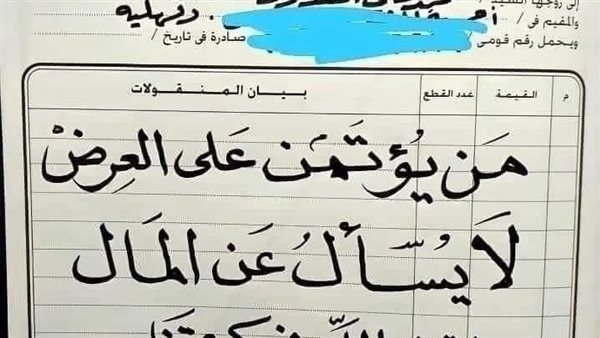 إلى زوجها السيد /
والمقيم فى / دقهليه
ويحمل رقم قومى صادرة فى تاريخ /
م القيمة عدد القطع بيان المنقولات
مَن يُؤتَمَن عَلى العِرضْ
لَا يُسّألُ عَن المَال